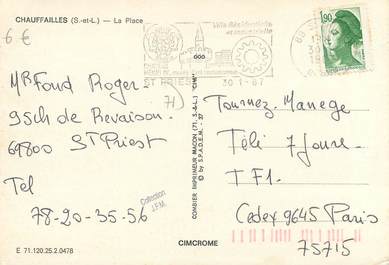 CHAUFFAILLES (S.-et-L.) — La Place
6 €
Ville Résidentielle
ST PRIEST
30-1-87
1,90
71
Mr Foud Roger
95ch de Revaison
69800 ST Priest
Tel
78-20-35-56
Collection J.F.M.
COMBIER IMPRIMEUR MACON (71, S.-&-L.) "CIM"
© by S.P.A.D.E.M. - 27
Tournez. Manege
Téli 7 Jours
TF1.
Cedex 9645 Paris
75715
E 71.120.25.2.0478
CIMCROME